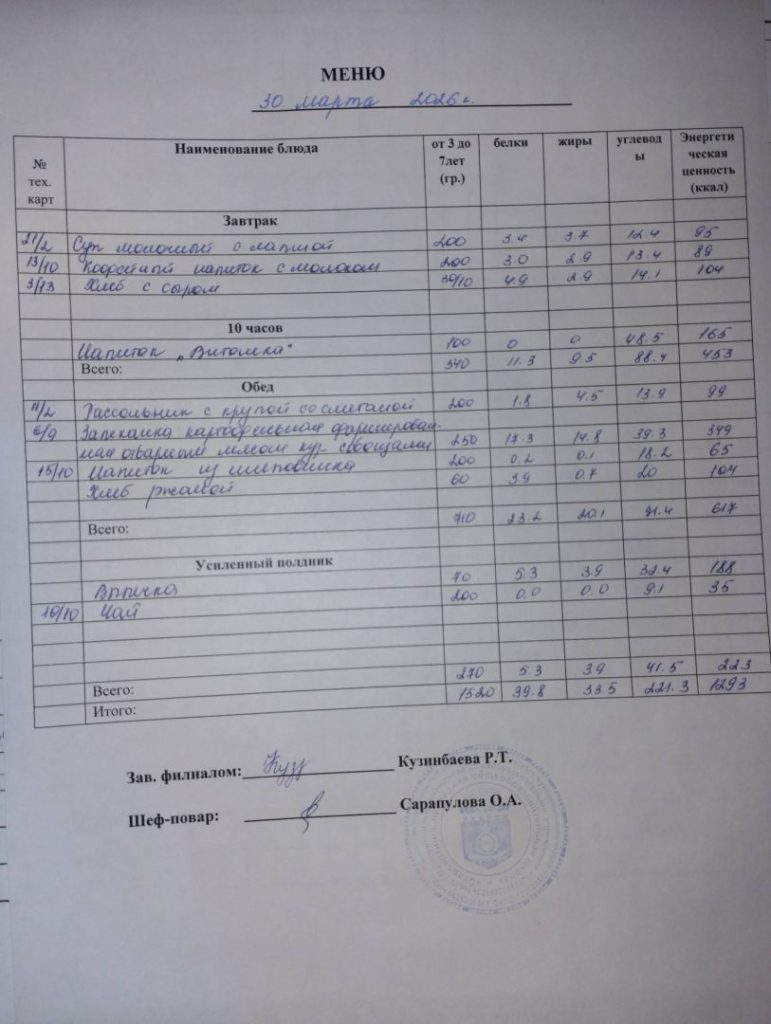 МЕНЮ
30 марта 2026 г.
№ тех. карт Наименование блюда от 3 до 7лет (гр.) белки жиры углеводы Энергетическая ценность (ккал)
Завтрак
21/2 Суп молочный с лапшой 200 3.4 3.7 12.4 95
13/10 Кофейный напиток с молоком 200 3.0 2.9 13.4 89
3/13 Хлеб с сыром 30/10 4.9 2.9 14.1 104
10 часов
Напиток „Витошка" 100 0 0 48.5 165
Всего: 540 11.3 9.5 88.4 453
Обед
11/2 Рассольник с крупой со сметаной 200 1.8 4.5 13.9 99
6/9 Запеканка картофельная фарширован-
ная отварным мясом кур с овощами 250 17.3 14.8 39.3 349
15/10 Напиток из шиповника 200 0.2 0.1 18.2 65
Хлеб ржаной 60 3.9 0.7 20 104
Всего: 710 23.2 20.1 91.4 617
Усиленный полдник
Выпечка 70 5.3 3.9 32.4 188
10/10 Чай 200 0.0 0.0 9.1 35
Всего: 270 5.3 3.9 41.5 223
Итого: 1520 39.8 33.5 221.3 1293
Зав. филиалом: Кузинбаева Р.Т.
Шеф-повар: Сарапулова О.А.